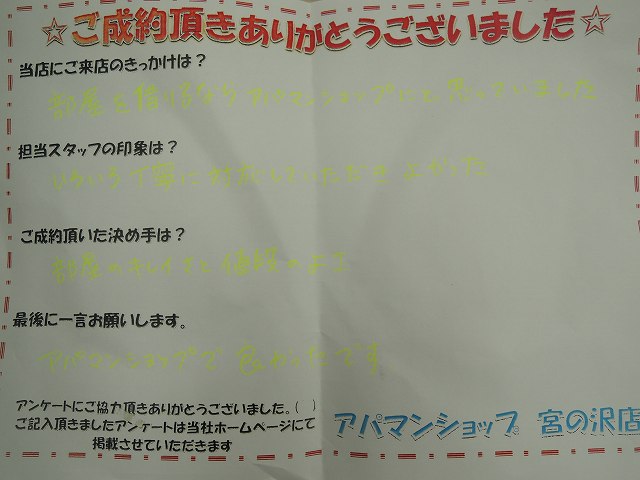 ☆ご成約頂きありがとうございました☆
当店にご来店のきっかけは？
部屋を借りるならアパマンショップにと思っていました
担当スタッフの印象は？
いろいろ丁寧に対応していただきよかった
ご成約頂いた決め手は？
部屋のキレイさと値段のよさ
最後に一言お願いします。
アパマンショップで良かったです
アンケートにご協力頂きありがとうございました。( )
ご記入頂きましたアンケートは当社ホームページにて
掲載させていただきます
アパマンショップ 宮の沢店